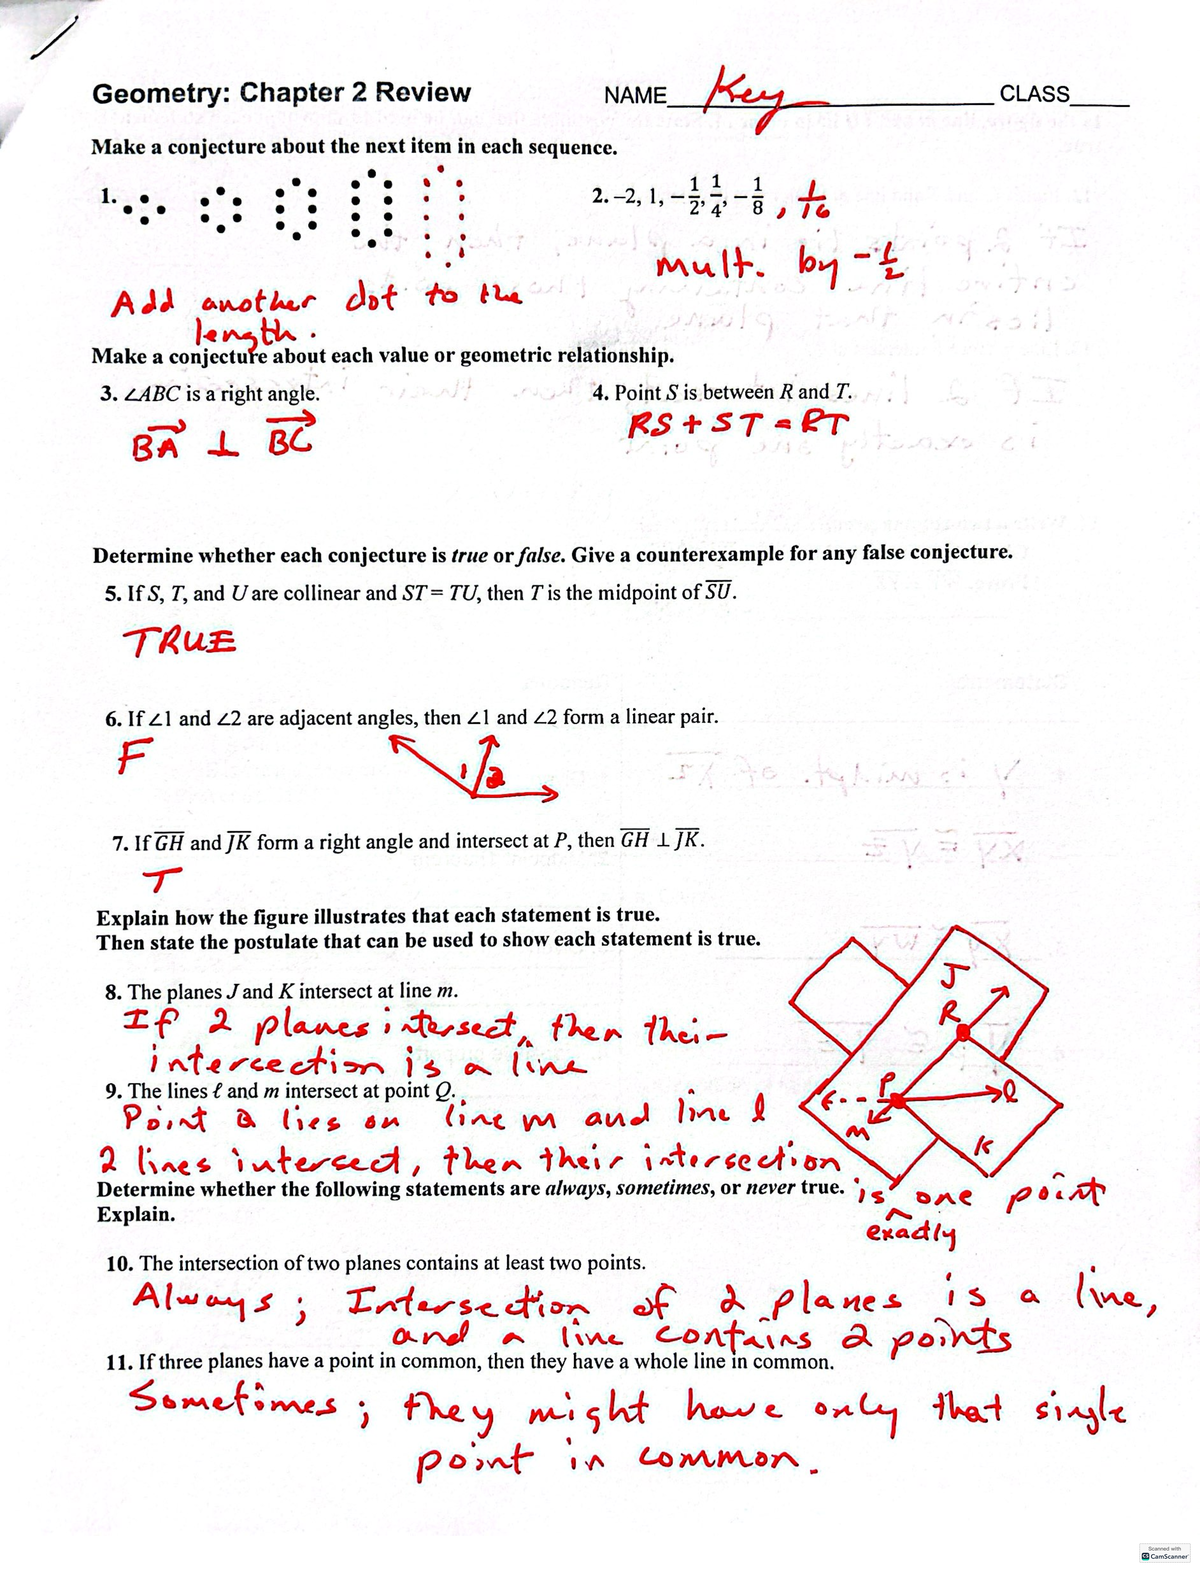 Geometry: Chapter 2 Review NAME Key CLASS
Make a conjecture about the next item in each sequence.
1. 2. –2, 1, –1/2, 1/4, –1/8 , 1/16
mult. by -1/2
Add another dot to the
length.
Make a conjecture about each value or geometric relationship.
3. ∠ABC is a right angle. 4. Point S is between R and T.
BA ⊥ BC RS + ST = RT
Determine whether each conjecture is true or false. Give a counterexample for any false conjecture.
5. If S, T, and U are collinear and ST = TU, then T is the midpoint of SU.
TRUE
6. If ∠1 and ∠2 are adjacent angles, then ∠1 and ∠2 form a linear pair.
F 1 2
7. If GH and JK form a right angle and intersect at P, then GH ⊥ JK.
T
Explain how the figure illustrates that each statement is true.
Then state the postulate that can be used to show each statement is true.
J
8. The planes J and K intersect at line m.
R
If 2 planes intersect, then their
intersection is a line
P l
9. The lines ℓ and m intersect at point Q.
Point Q lies on line m and line l
m K
2 lines intersect, then their intersection
Determine whether the following statements are always, sometimes, or never true. is one point
Explain. exactly
10. The intersection of two planes contains at least two points.
Always; Intersection of 2 planes is a line,
and a line contains 2 points
11. If three planes have a point in common, then they have a whole line in common.
Sometimes; they might have only that single
point in common.
Scanned with
CamScanner